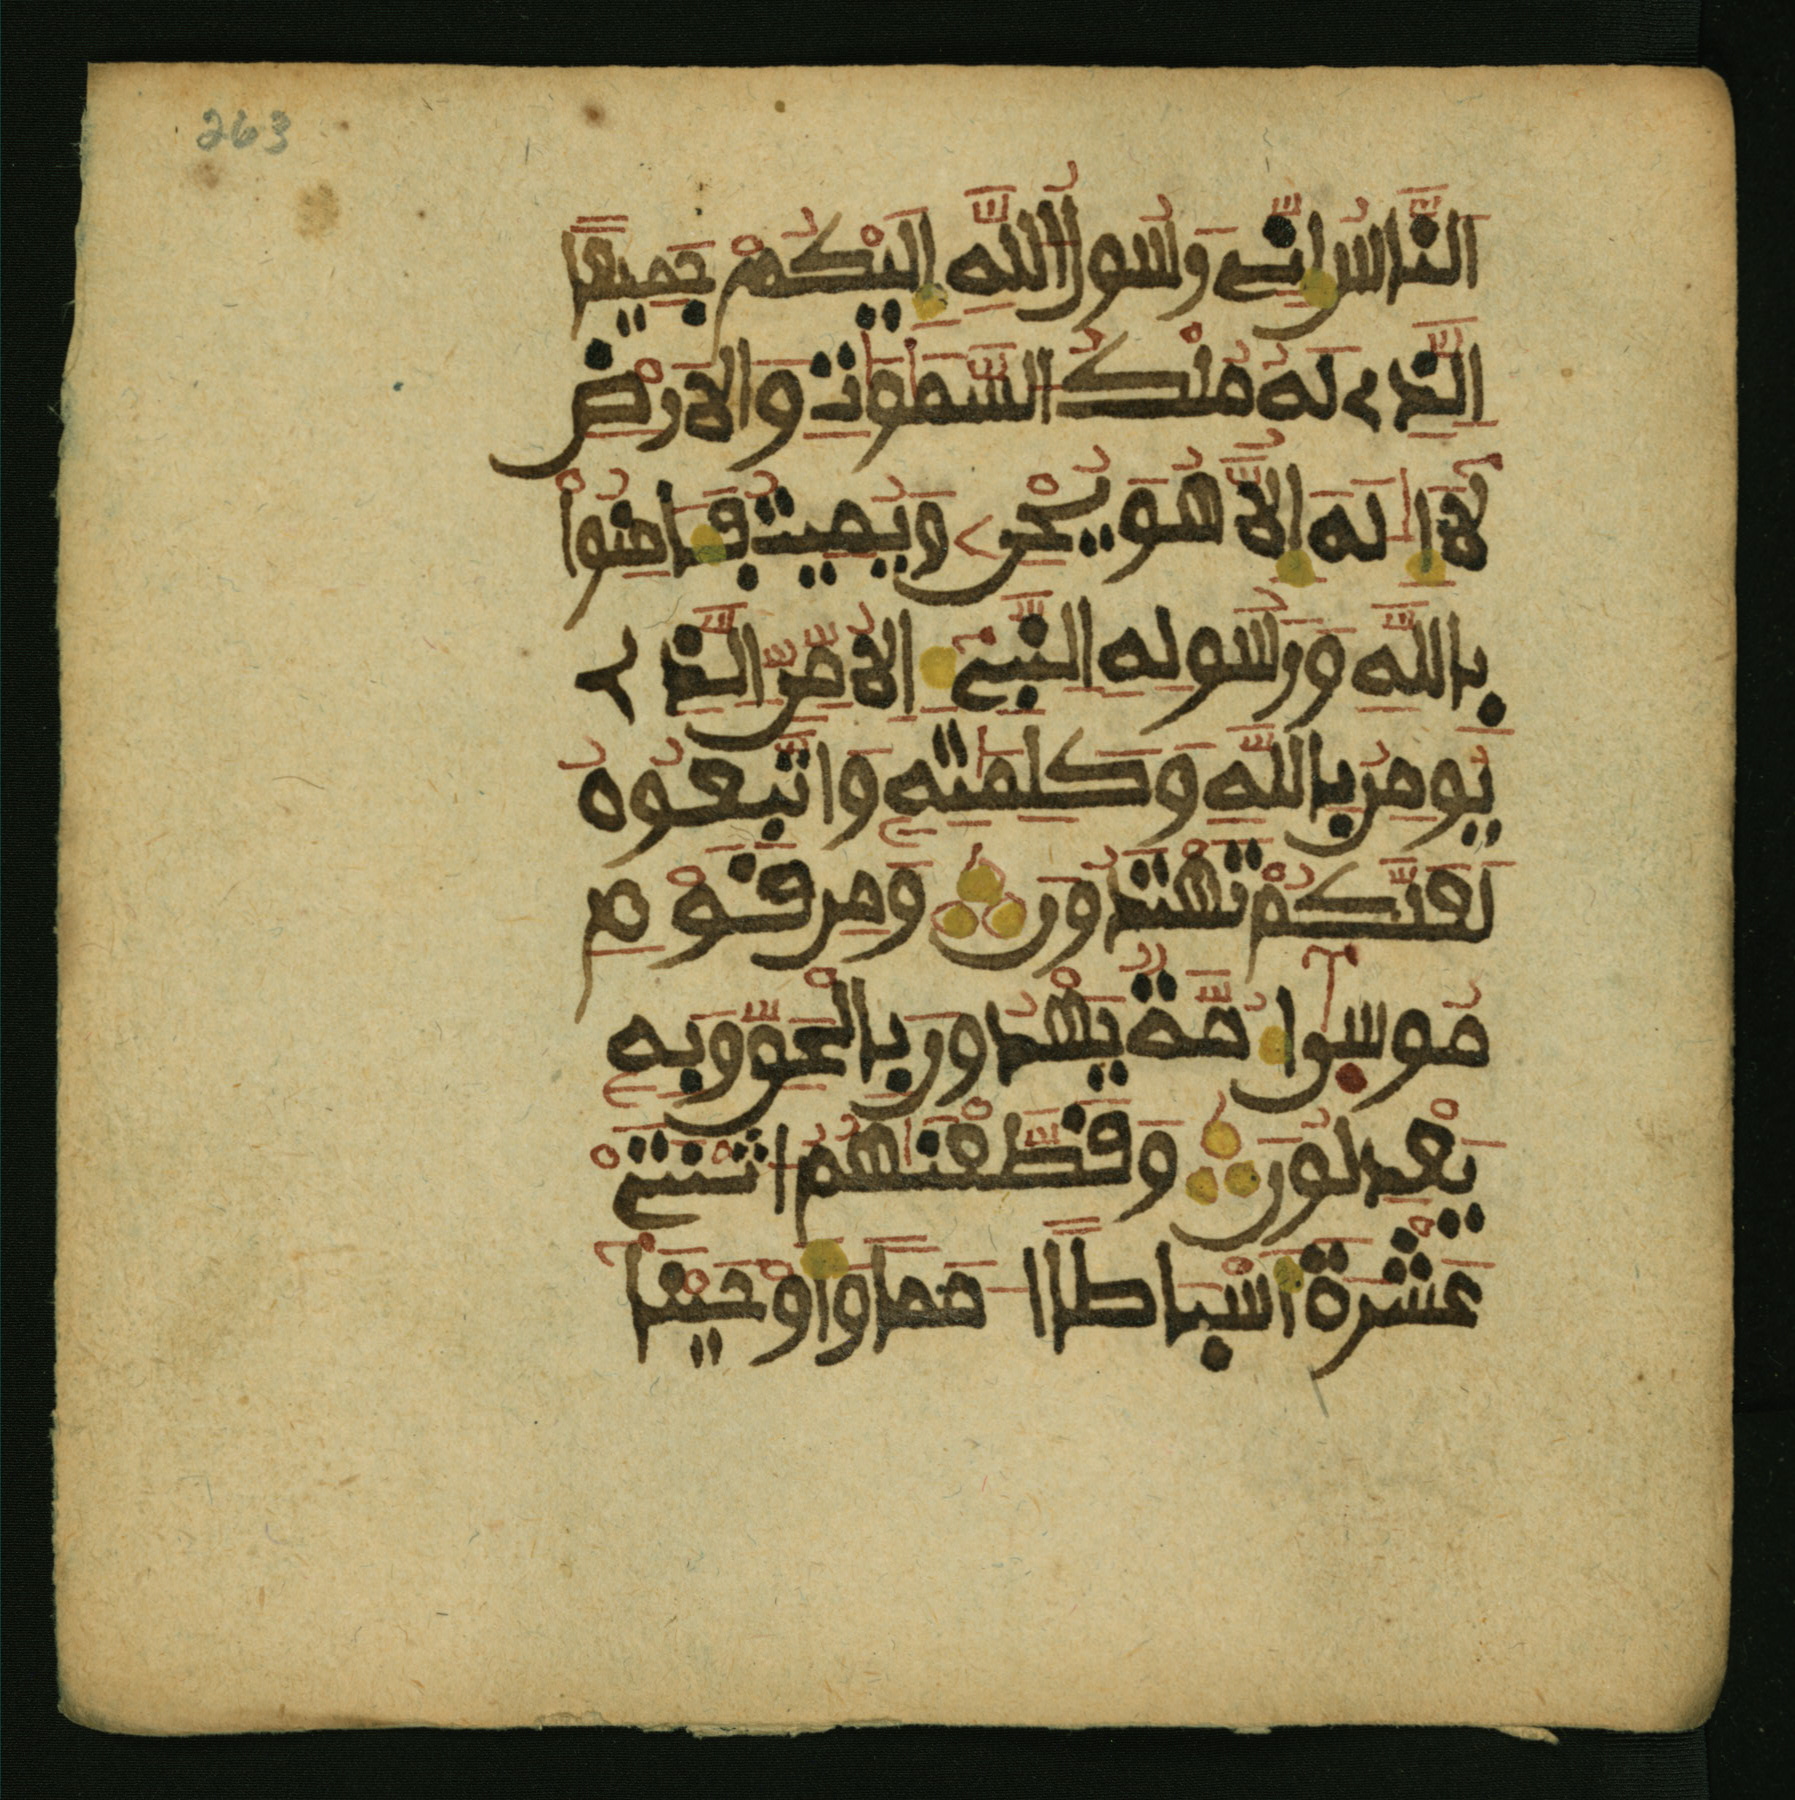 263
النَّاسُ إِنِّے رَسُولُ اللَّهِ إِلَيْكُمْ جَمِيعًا
الَّذِے لَهُ مُلْكُ السَّمَٰوَٰتِ وَالَارْضِ
لَآ إِلَٰهَ إِلَّا هُوَ يُحْيِے وَيُمِيتُ فَـَٔامِنُوا
بِاللَّهِ وَرَسُولِهِ النَّبِےٓءِ الُامِّيِّ الَّذِے
يُومِنُ بِاللَّهِ وَكَلِمَٰتِهِ وَاتَّبِعُوهُ
لَعَلَّكُمْ تَهْتَدُونَ وَمِن قَوْمِ
مُوسَىٰٓ أُمَّةٌ يَهْدُونَ بِالْحَقِّ وَبِهِ
يَعْدِلُونَ وَقَطَّعْنَٰهُمُ اثْنَتَےْ
عَشْرَةَ أَسْبَاطًا امَمًا وَأَوْحَيْنَآ